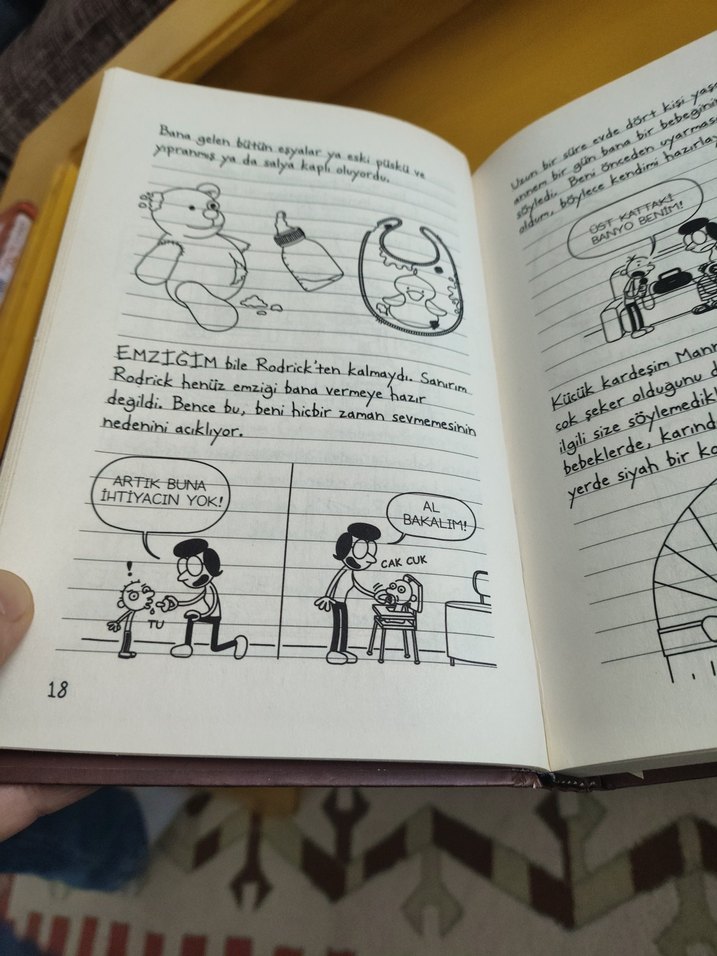 Bana gelen bütün eşyalar ya eski püskü ve
yıpranmış ya da salya kaplı oluyordu.
EMZİĞİM bile Rodrick'ten kalmaydı. Sanırım
Rodrick henüz emziği bana vermeye hazır
değildi. Bence bu, beni hicbir zaman sevmemesinin
nedenini acıklıyor.
ARTIK BUNA
İHTİYACIN YOK!
!
TU
AL
BAKALIM!
CAK CUK
18
Uzun bir süre evde dört kişi
annem bir gün bana bir
söyledi. Beni önceden
oldum, böylece kendimi
ÜST KATTAKİ
BANYO BENİM!
Kücük kardeşim
cok şeker olduğunu
ilgili size
bebeklerde,
yerde siyah bir